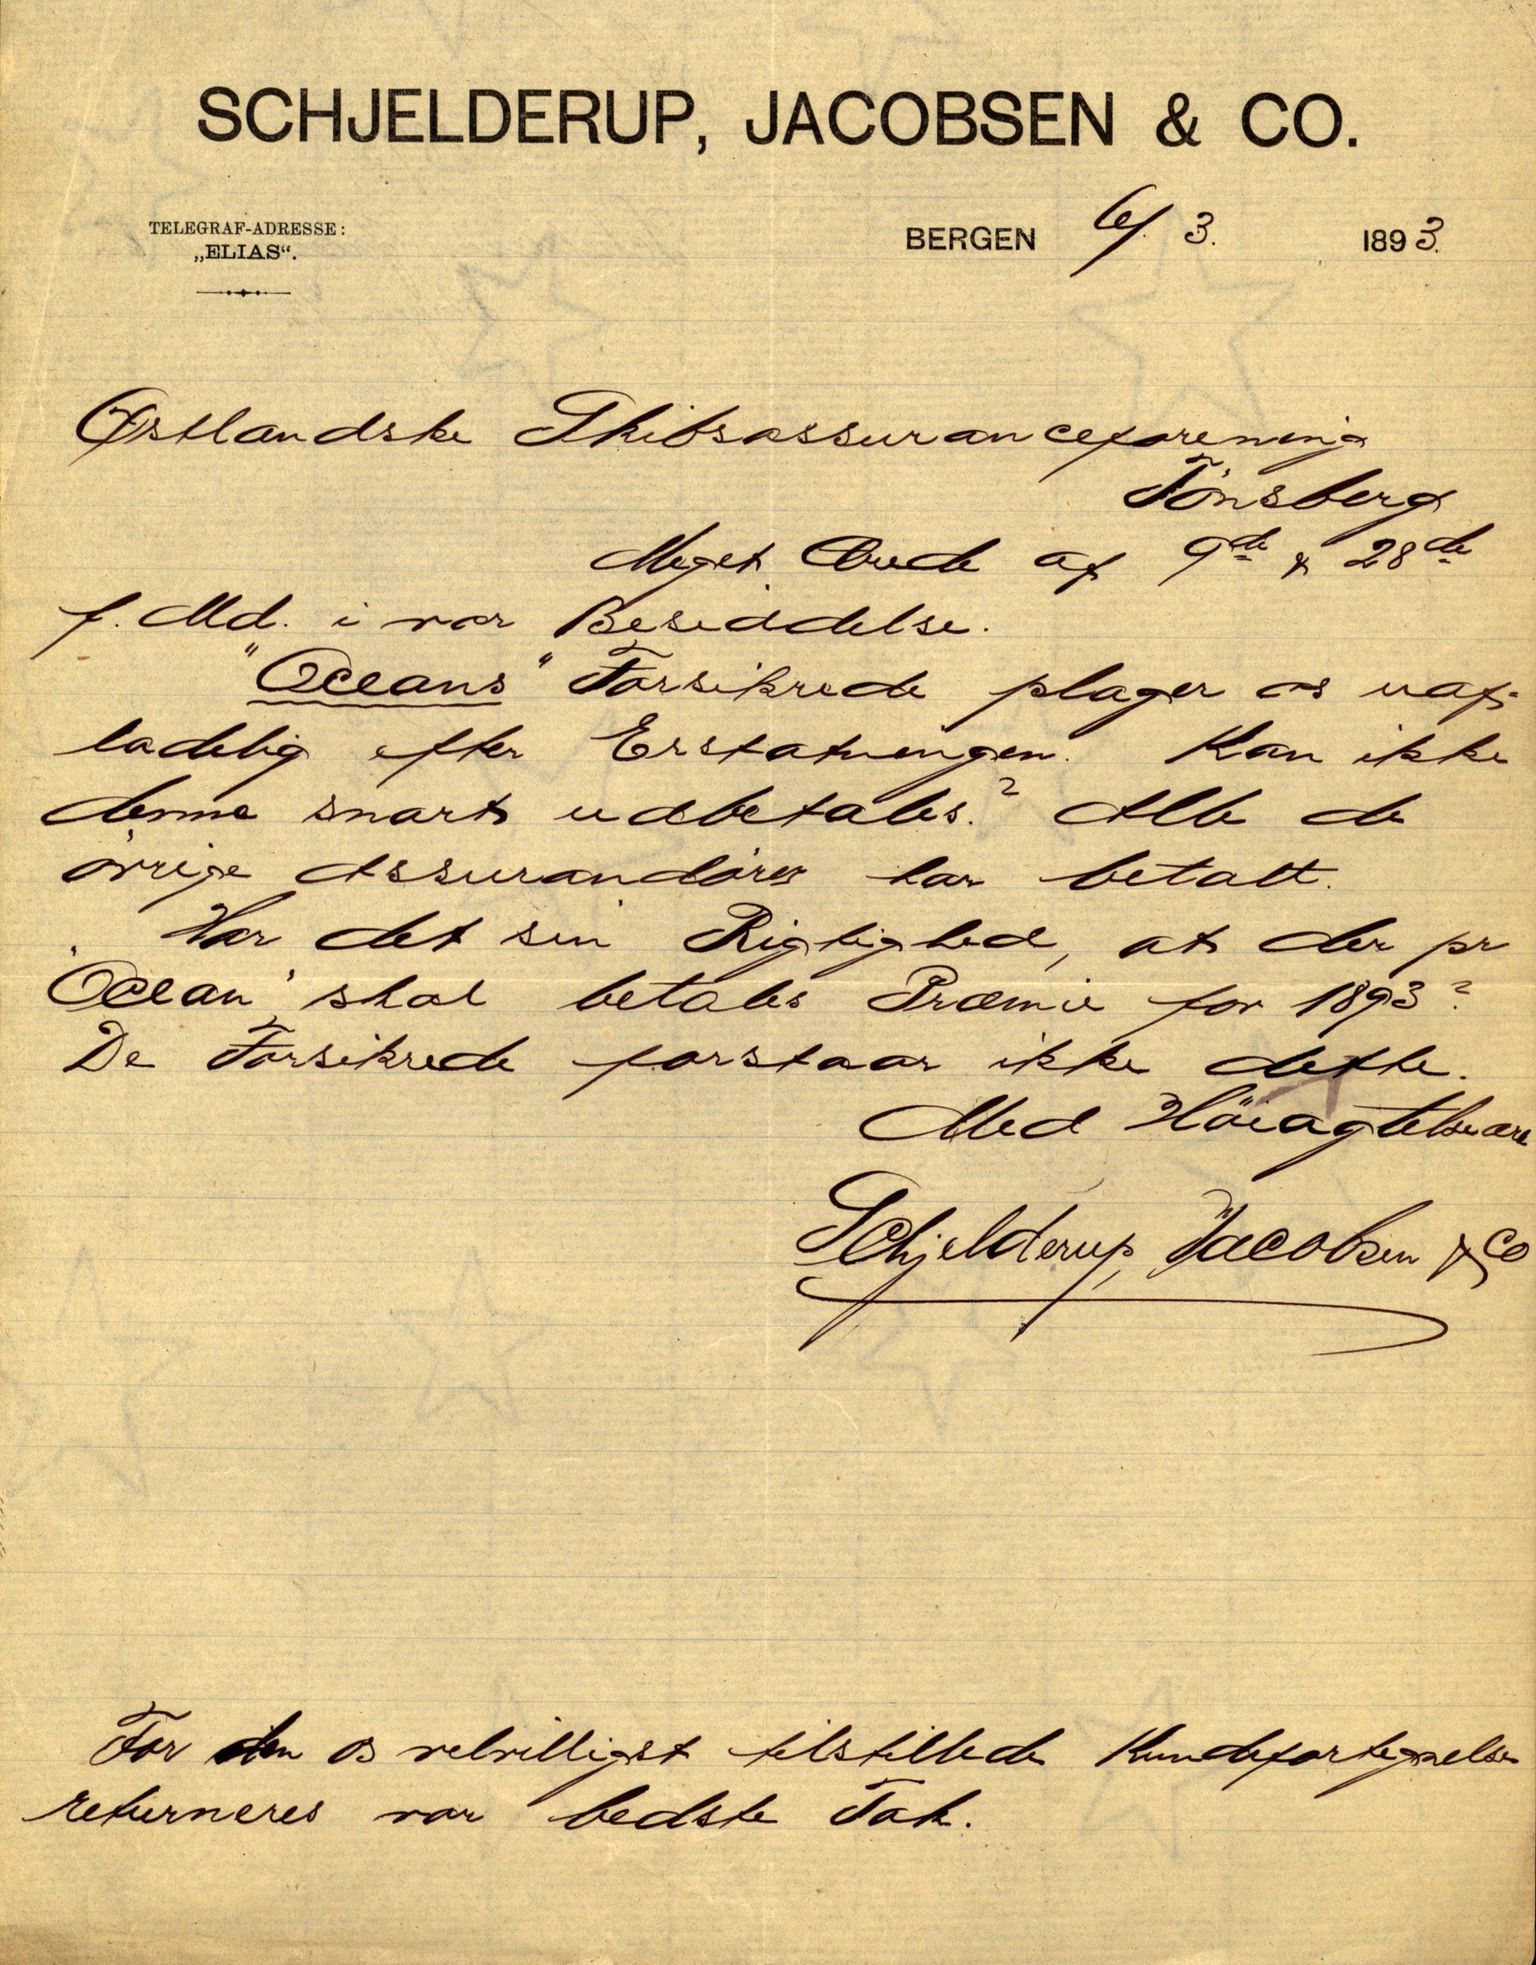 SCHJELDERUP, JACOBSEN & CO.
TELEGRAF-ADRESSE:
„ELIAS“.
BERGEN 6/3. 1893.
Østlandske Skibsassuranceforening
Tönsberg
Meget Ærede af 9de & 28de
f. Md. i vor Besiddelse.
"Oceans" Forsikrede plager os uaf-
ladelig efter Erstatningen. Kan ikke
denne snart udbetales? Alle de
övrige Assurandörer har betalt.
Har det sin Rigtighed, at der pr
"Ocean" skal betales Præmie for 1893?
De Forsikrede forstaar ikke dette.
Med Höiagtelse
Schjelderup, Jacobsen & Co
For den os velvilligst tilstillede Kundefortegnelse
returneres vor bedste Tak.